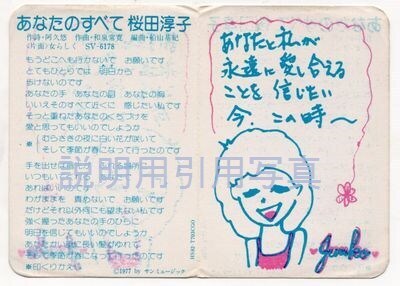 あなたのすべて 桜田淳子
作詩・阿久悠 作曲・和泉常寛 編曲・船山基紀
(片面)女らしく SV-6178
もうどこへも行かないで お願いです
とてもひとりでは 明日から
歩けない
あなたの手 あなたの肩 あなたの胸
いいえそのすべて近くに 感じたい私です
そっと重ねたあなたのくちづけを
愛と思ってもいいのでしょうか
むらさきの夜に白い花が咲いて
※
そして季節が春になって行ったのです
手を出せば
いつもい
あれば お願いです
わがままを 責めないで お願いです
だけどそれ以外何も望まない私です
強く握ったあなたの手のひらに
明日を信じてもいいのでしょうか
※印くりかえし
©1977 by サンミュージック
説明用引用写真
あなたと私が
永遠に愛し合える
ことを信じたい
今.この時〜
Junko